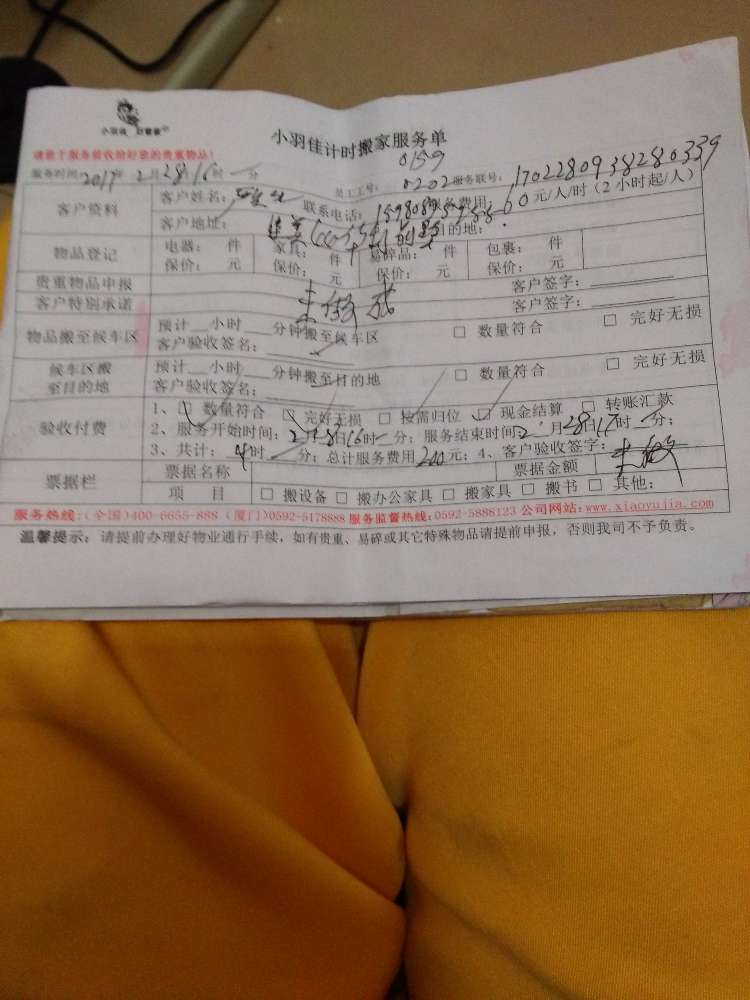 小羽佳
小羽佳计时搬家服务单
请您于服务前收拾好您的贵重物品!
0159
服务时间2017年2月28日16时一分 员工工号: 0202 服务联号: 1702280938280339
客户资料 客户姓名: 联系电话: 服务费用: 60元/人/时(2小时起/人)
客户地址: 目的地:
物品登记 电器: 件 家具: 件 易碎品: 件 包裹: 件
保价: 元 保价: 元 保价: 元 保价: 元
贵重物品申报 客户签字:
客户特别承诺 客户签字:
物品搬至候车区 预计__小时__分钟搬至候车区 □ 数量符合 □ 完好无损
客户验收签名:
候车区搬至目的地 预计__小时__分钟搬至目的地 □ 数量符合 □ 完好无损
客户验收签名:
验收付费 1、□ 数量符合 □ 完好无损 □ 按需归位 □ 现金结算 □ 转账汇款
2、服务开始时间: 2月28日16时一分; 服务结束时间: 2月28日17时一分;
3、共计: 4时__分; 总计服务费用 200元; 4、客户验收签字:
票据栏 票据名称 票据金额
项 目 □ 搬设备 □ 搬办公家具 □ 搬家具 □ 搬书 □ 其他:
服务热线:(全国)400-6655-888 (厦门)0592-5178888 服务监督热线:0592-5888123 公司网站:www.xiaoyujia.com
温馨提示: 请提前办理好物业通行手续,如有贵重、易碎或其它特殊物品请提前申报,否则我司不予负责。